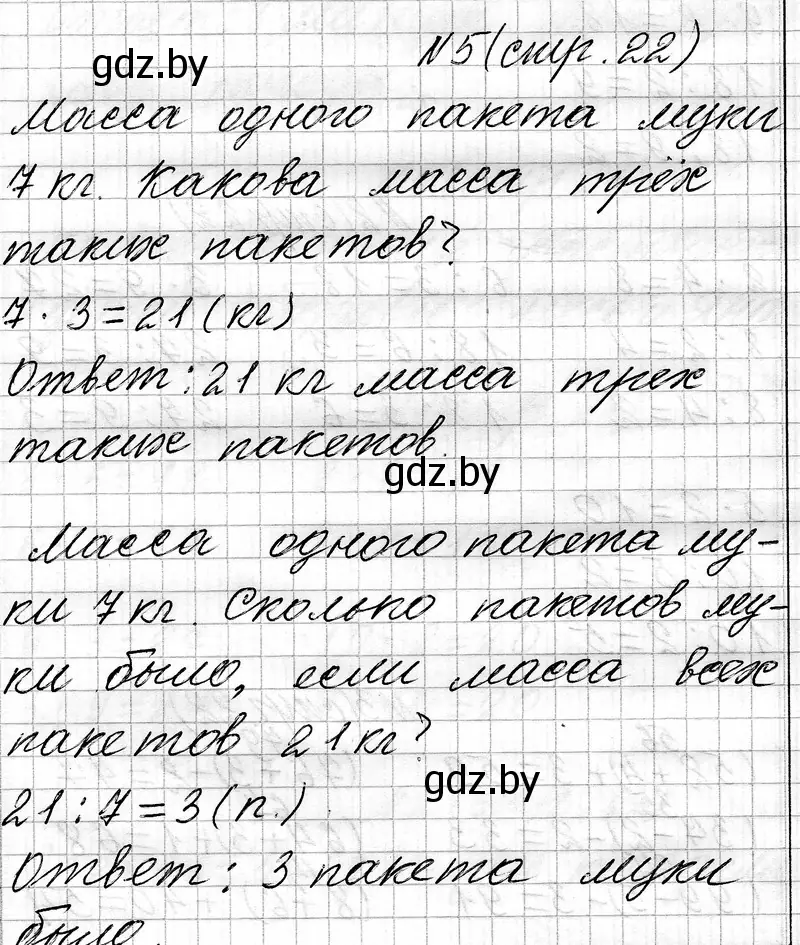 gdz.by
№5(стр. 22)
Масса одного пакета муки
7 кг. Какова масса трёх
таких пакетов?
7 · 3 = 21 (кг)
Ответ: 21 кг масса трех
таких пакетов.
gdz.by
Масса одного пакета му-
ки 7 кг. Сколько пакетов му-
ки было, если масса всех
пакетов 21 кг?
gdz.by
21 : 7 = 3 (п.)
Ответ: 3 пакета муки
было.